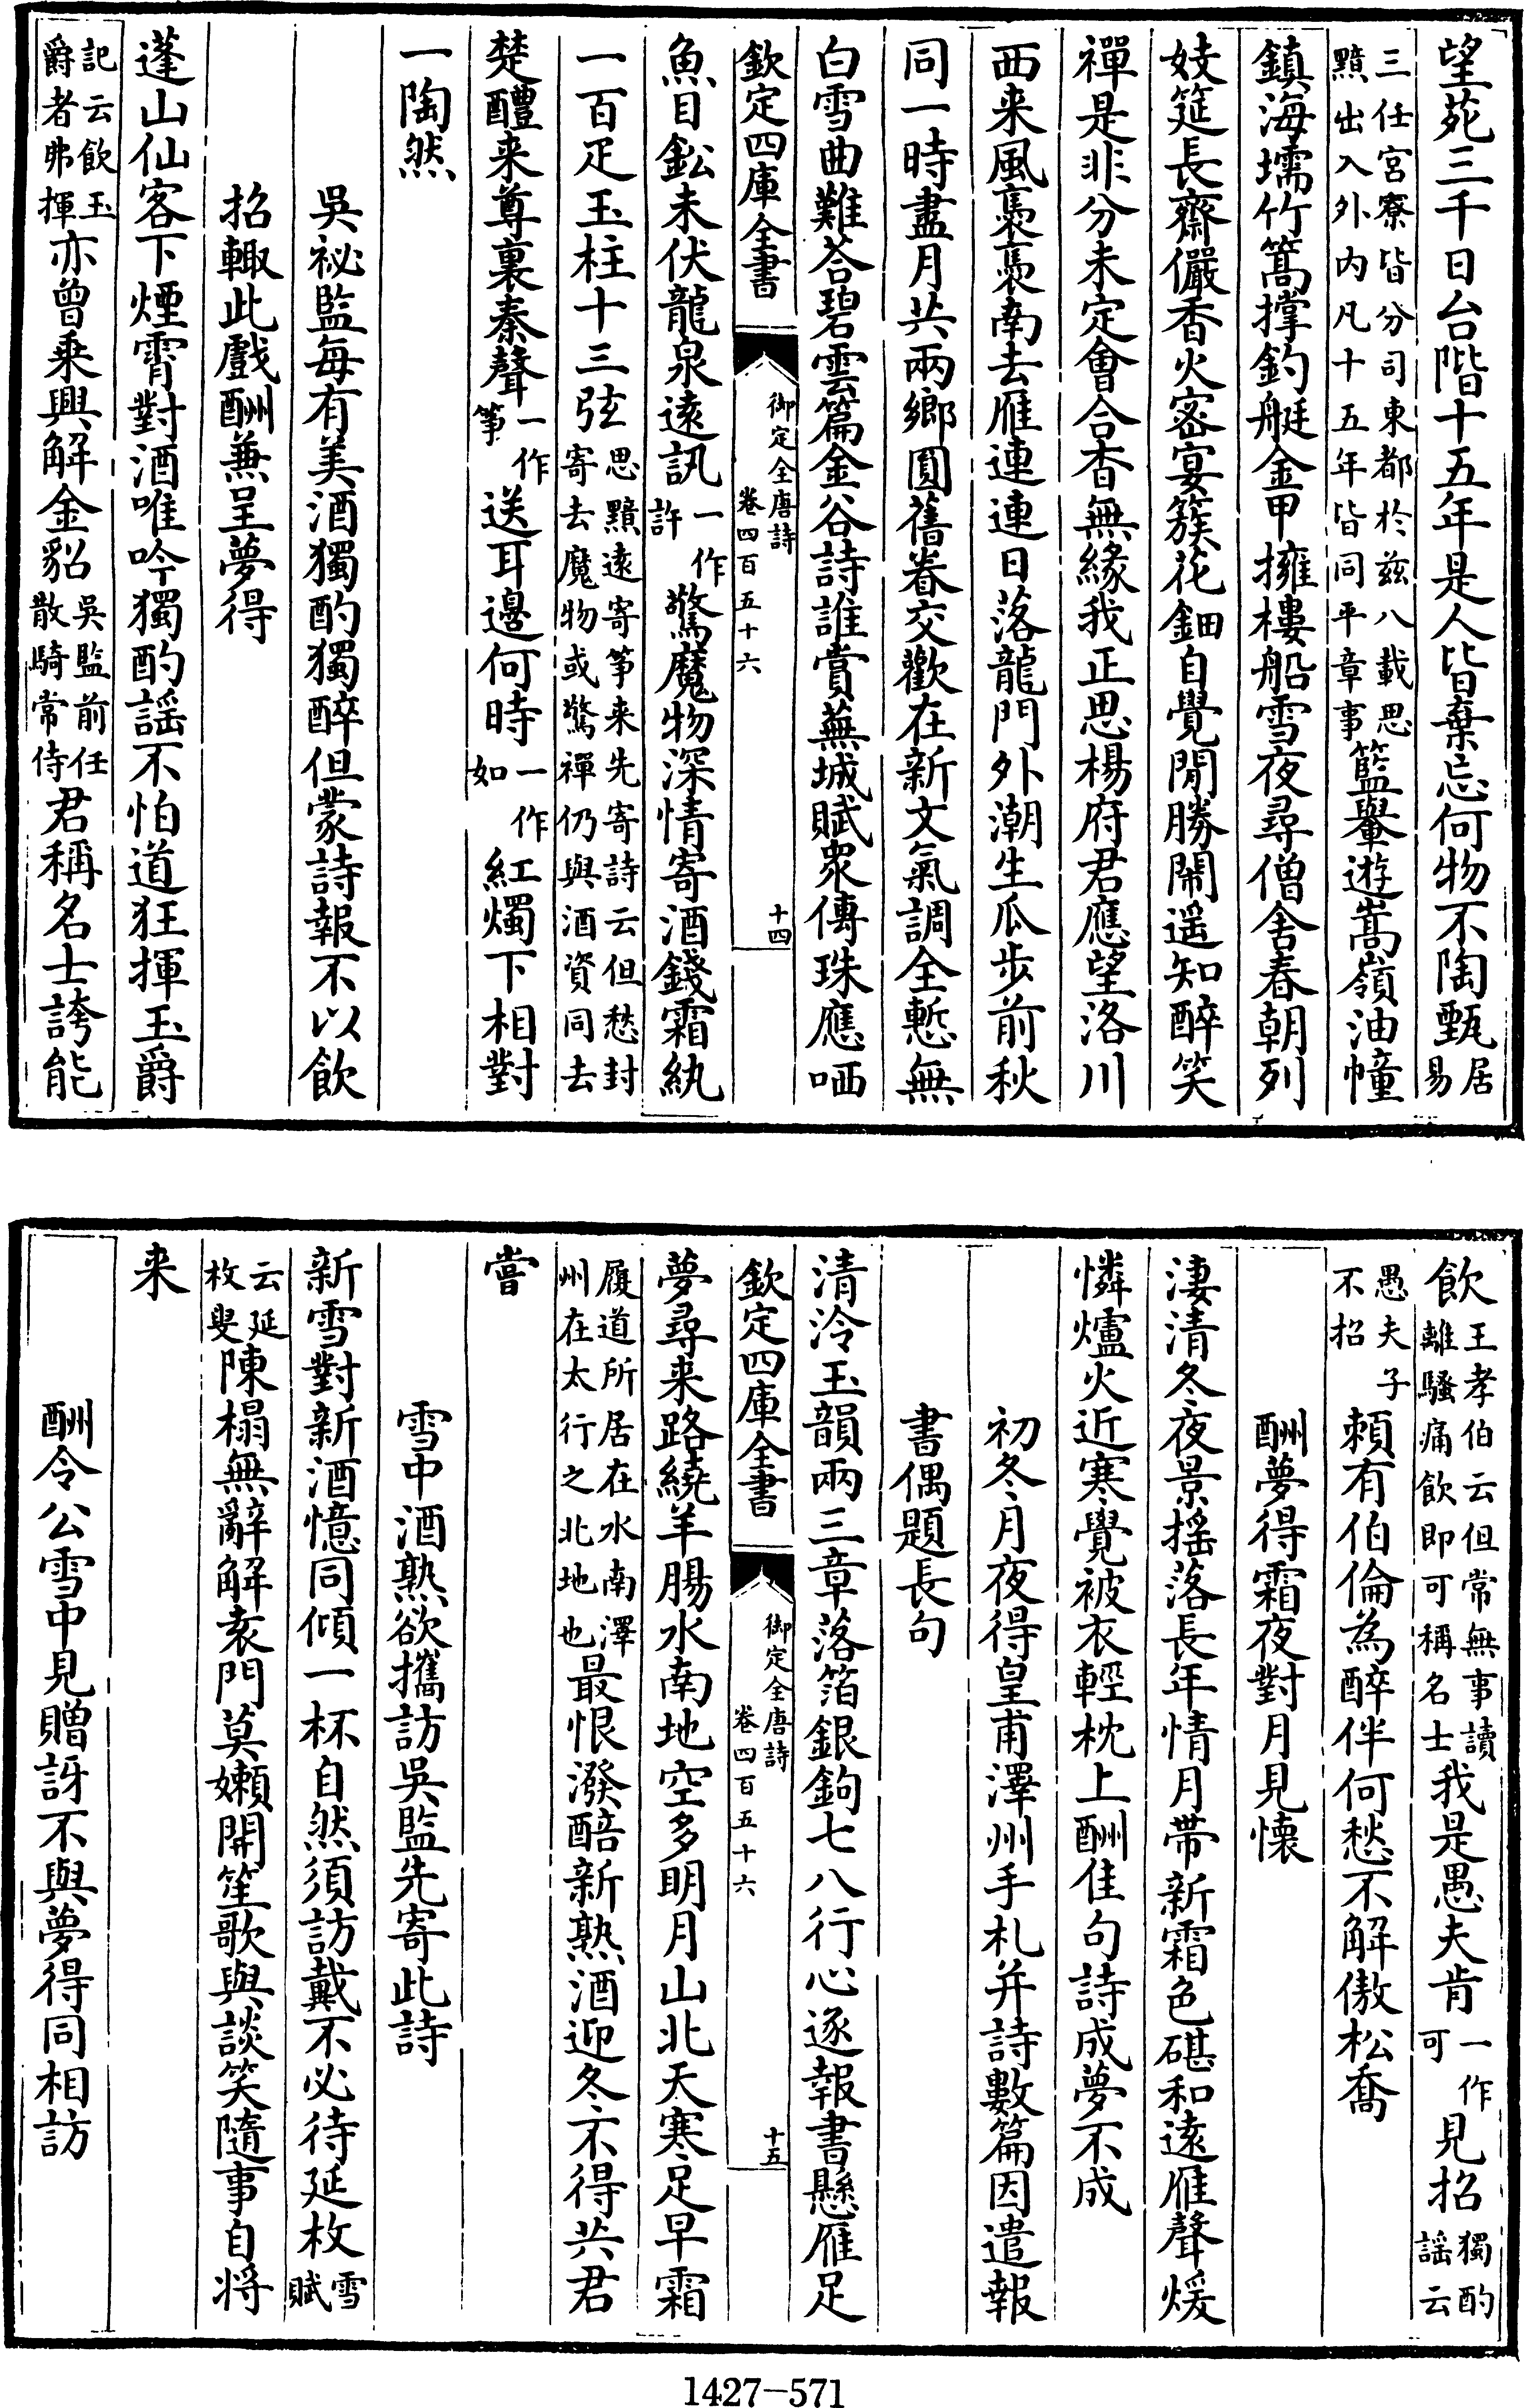 望苑三千日台階十五年是人皆棄忘何物不陶甄居易
三任宮寮皆分司東都於兹八載思黯出入外内凡十五年皆同平章事籃轝遊嵩嶺油幢
鎮海壖竹篙撐釣艇金甲擁樓船雪夜尋僧舍春朝列
妓筵長齋儼香火密宴簇花鈿自覺閒勝鬧遥知醉笑
禪是非分未定會合杳無緣我正思楊府君應望洛川
西来風褭褭南去雁連連日落龍門外潮生瓜步前秋
同一時盡月共兩鄉圓舊眷交歡在新文氣調全慙無
白雪曲難答碧雲篇金谷詩誰賞蕪城賦衆傳珠應哂
欽定四庫全書
御定全唐詩
卷四百五十六
十四
魚目鈆未伏龍泉遠訊一作許驚魔物深情寄酒錢霜紈
一百疋玉柱十三弦思黯遠寄筝来先寄詩云但愁封寄去魔物或驚禪仍與酒資同去
楚醴来尊裏秦聲一作筝送耳邊何時一作如紅燭下相對
一陶然
吳祕監每有美酒獨酌獨醉但蒙詩報不以飲
招輙此戲酬兼呈夢得
蓬山仙客下煙霄對酒唯吟獨酌謡不怕道狂揮玉爵
記云飲玉爵者弗揮亦曾乘興解金貂吳監前任散騎常侍君稱名士誇能
飲王孝伯云但常無事讀離騷痛飲即可稱名士我是愚夫肯一作可見招獨酌謡云
愚夫子不招頼有伯倫為醉伴何愁不解傲松喬
酬夢得霜夜對月見懷
淒清冬夜景揺落長年情月帶新霜色碪和遠雁聲煖
憐爐火近寒覺被衣輕枕上酬佳句詩成夢不成
初冬月夜得皇甫澤州手札并詩數篇因遣報
書偶題長句
清泠玉韻兩三章落箔銀鉤七八行心逐報書懸雁足
欽定四庫全書
御定全唐詩
卷四百五十六
十五
夢尋来路繞羊腸水南地空多明月山北天寒足早霜
履道所居在水南澤州在太行之北地也最恨潑醅新熟酒迎冬不得共君
嘗
雪中酒熟欲攜訪吳監先寄此詩
新雪對新酒憶同傾一杯自然須訪戴不必待延枚雪賦
云延枚叟陳榻無辭解袁門莫嬾開笙歌與談笑隨事自將
来
酬令公雪中見贈訝不與夢得同相訪
1427-571